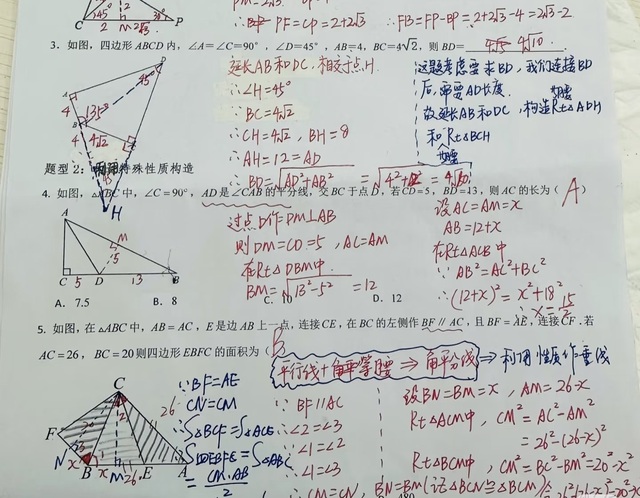 ∴ PF=CP=2+2√3 ∴FB=FP-BP=2+2√3-4=2√3-2
3. 如图，四边形 ABCD 内，∠A=∠C=90°，∠D=45°，AB=4，BC=4√2，则 BD= 4√10.
延长AB和DC，相交于点H.
∴∠H=45°
∵BC=4√2
∴CH=4√2，BH=8
∴AH=12=AD
∴BD=√AD²+AB²
这题考虑要求BD，我们连接BD
后，需要AD长度.
故延长AB和DC，构造Rt△ADH
和Rt△BCH
45°
4
135°
4
4√2
H
题型 2：利用特殊性质构造
4. 如图，△ABC 中，∠C=90°，AD 是∠CAB 的平分线，交 BC 于点 D，若 CD=5，BD=13，则 AC 的长为（ A ）
过点D作DM⊥AB
则DM=CD=5，AC=AM
在Rt△DBM中
BM=√13²-5²=12
设AC=AM=x
AB=12+x
在Rt△ACB中
∵AB²=AC²+BC²
∴(12+x)²=x²+18²
∴x=15/2
A
M
5
C 5 D 13 B
A. 7.5 B. 8 C. 10 D. 12
5. 如图，在△ABC 中，AB=AC，E 是边 AB 上一点，连接 CE，在 BC 的左侧作 BF∥AC，且 BF=AE，连接 CF．若
AC=26，BC=20 则四边形 EBFC 的面积为（ B
⇒ 角平分线 ⇒ 利用性质作垂线
∵BF=AE
CN=CM
∴S△BCF=S△ACE
∴S四EBFC=S△ABC
=CM·AB/2
∵BF∥AC
∴∠2=∠3
∴∠1=∠2
∴∠1=∠3
∴CM=CN，
设BN=BM=x，AM=26-x
Rt△ACM中，CM²=AC²-AM²
=26²-(26-x)²
Rt△BCM中，CM²=BC²-BM²=20²-x²
BN=BM(证△BCN≌△BCM)
C
26
F
N x B M E A